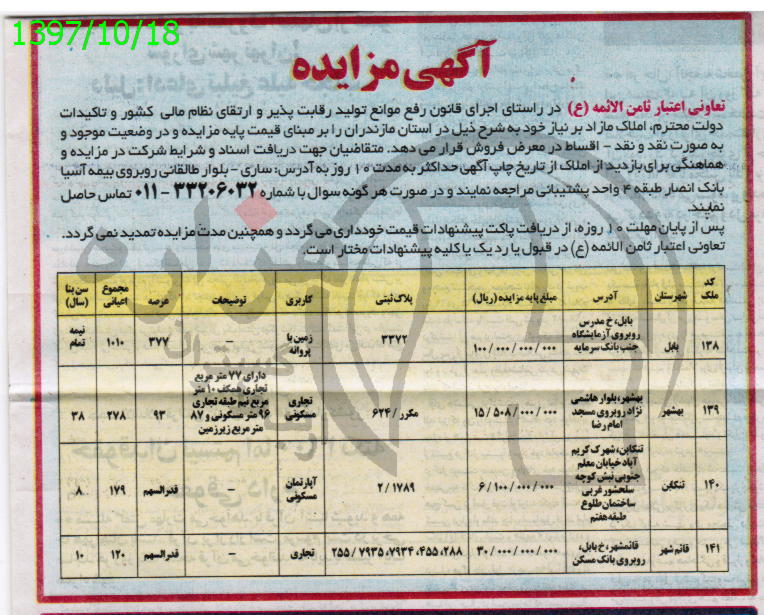 1397/10/18
آگهی مزایده
تعاونی اعتبار ثامن الائمه (ع) در راستای اجرای قانون رفع موانع تولید رقابت پذیر و ارتقای نظام مالی کشور و تاکیدات
دولت محترم، املاک مازاد بر نیاز خود به شرح ذیل در استان مازندران را بر مبنای قیمت پایه مزایده و در وضعیت موجود و
به صورت نقد و نقد - اقساط در معرض فروش قرار می دهد. متقاضیان جهت دریافت اسناد و شرایط شرکت در مزایده و
هماهنگی برای بازدید از املاک از تاریخ چاپ آگهی حداکثر به مدت ۱۰ روز به آدرس: ساری - بلوار طالقانی روبروی بیمه آسیا
بانک انصار طبقه ۴ واحد پشتیبانی مراجعه نمایند و در صورت هر گونه سوال با شماره ۳۳۲۰۶۰۳۲ - ۰۱۱ تماس حاصل
نمایند.
پس از پایان مهلت ۱۰ روزه، از دریافت پاکت پیشنهادات قیمت خودداری می گردد و همچنین مدت مزایده تمدید نمی گردد.
تعاونی اعتبار ثامن الائمه (ع) در قبول یا رد یک یا کلیه پیشنهادات مختار است.
کد ملک شهرستان آدرس مبلغ پایه مزایده (ریال) پلاک ثبتی کاربری توضیحات عرصه مجموع اعیانی سن بنا (سال)
۱۳۸ بابل بابل، خ مدرس روبروی آزمایشگاه جنب بانک سرمایه ۱۰۰/۰۰۰/۰۰۰/۰۰۰ ۳۳۷۲ زمین با پروانه - ۳۷۷ ۱۰۱۰ نیمه تمام
۱۳۹ بهشهر بهشهر، بلوار هاشمی نژاد روبروی مسجد امام رضا ۱۵/۵۰۸/۰۰۰/۰۰۰ مکرر / ۶۲۴ تجاری مسکونی دارای ۷۷ متر مربع تجاری همکف ۱۰ متر مربع نیم طبقه تجاری ۹۶ متر مسکونی و ۸۷ متر مربع زیرزمین ۹۳ ۲۷۸ ۳۸
۱۴۰ تنکابن تنکابن، شهرک کریم آباد خیابان معلم جنوبی نبش کوچه سلحشور غربی ساختمان طلوع طبقه هفتم ۶/۱۰۰/۰۰۰/۰۰۰ ۲/۱۷۸۹ آپارتمان مسکونی - قدرالسهم ۱۷۹ ۸
۱۴۱ قائم شهر قائمشهر، خ بابل، روبروی بانک مسکن ۳۰/۰۰۰/۰۰۰/۰۰۰ ۲۵۵/۷۹۳۵،۷۹۳۴،۴۵۵،۲۸۸ تجاری - قدرالسهم ۱۲۰ ۱۰